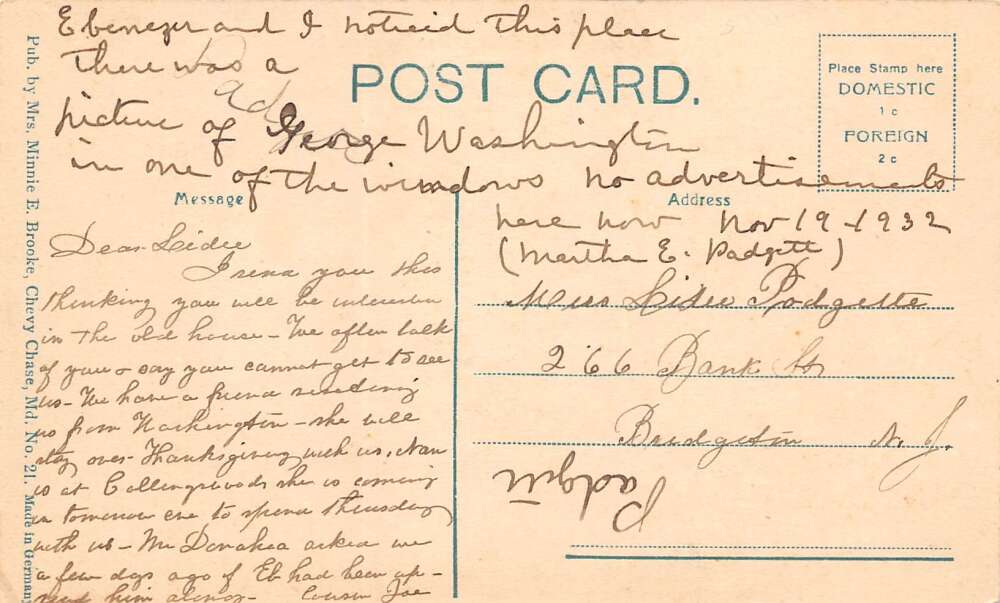 Ebenezer and I noticed this place
there was a
ad
picture of George Washington
in one of the windows no advertisements
here now Nov 19-1932
(Martha E. Padgett)
POST CARD.
Place Stamp here
DOMESTIC
1 c
FOREIGN
2 c
Message
Address
Dear Lidie
I send you this
thinking you will be interested
in the old house - We often talk
of you & say you cannot get to see
us - We have a friend residing
us from Washington - she will
stay over Thanksgiving with us. Nan
is at Collingswood she is coming
in tomorrow eve to spend Thursday
with us - Mr Donahea asked me
a few days ago if Eb had been up -
him along - Cousin Joe
Miss Lidie Padgette
266 Bank St
Bridgeton N. J.
Padgett
Pub. by Mrs. Minnie E. Brooke, Chevy Chase, Md. No. 21. Made in Germany